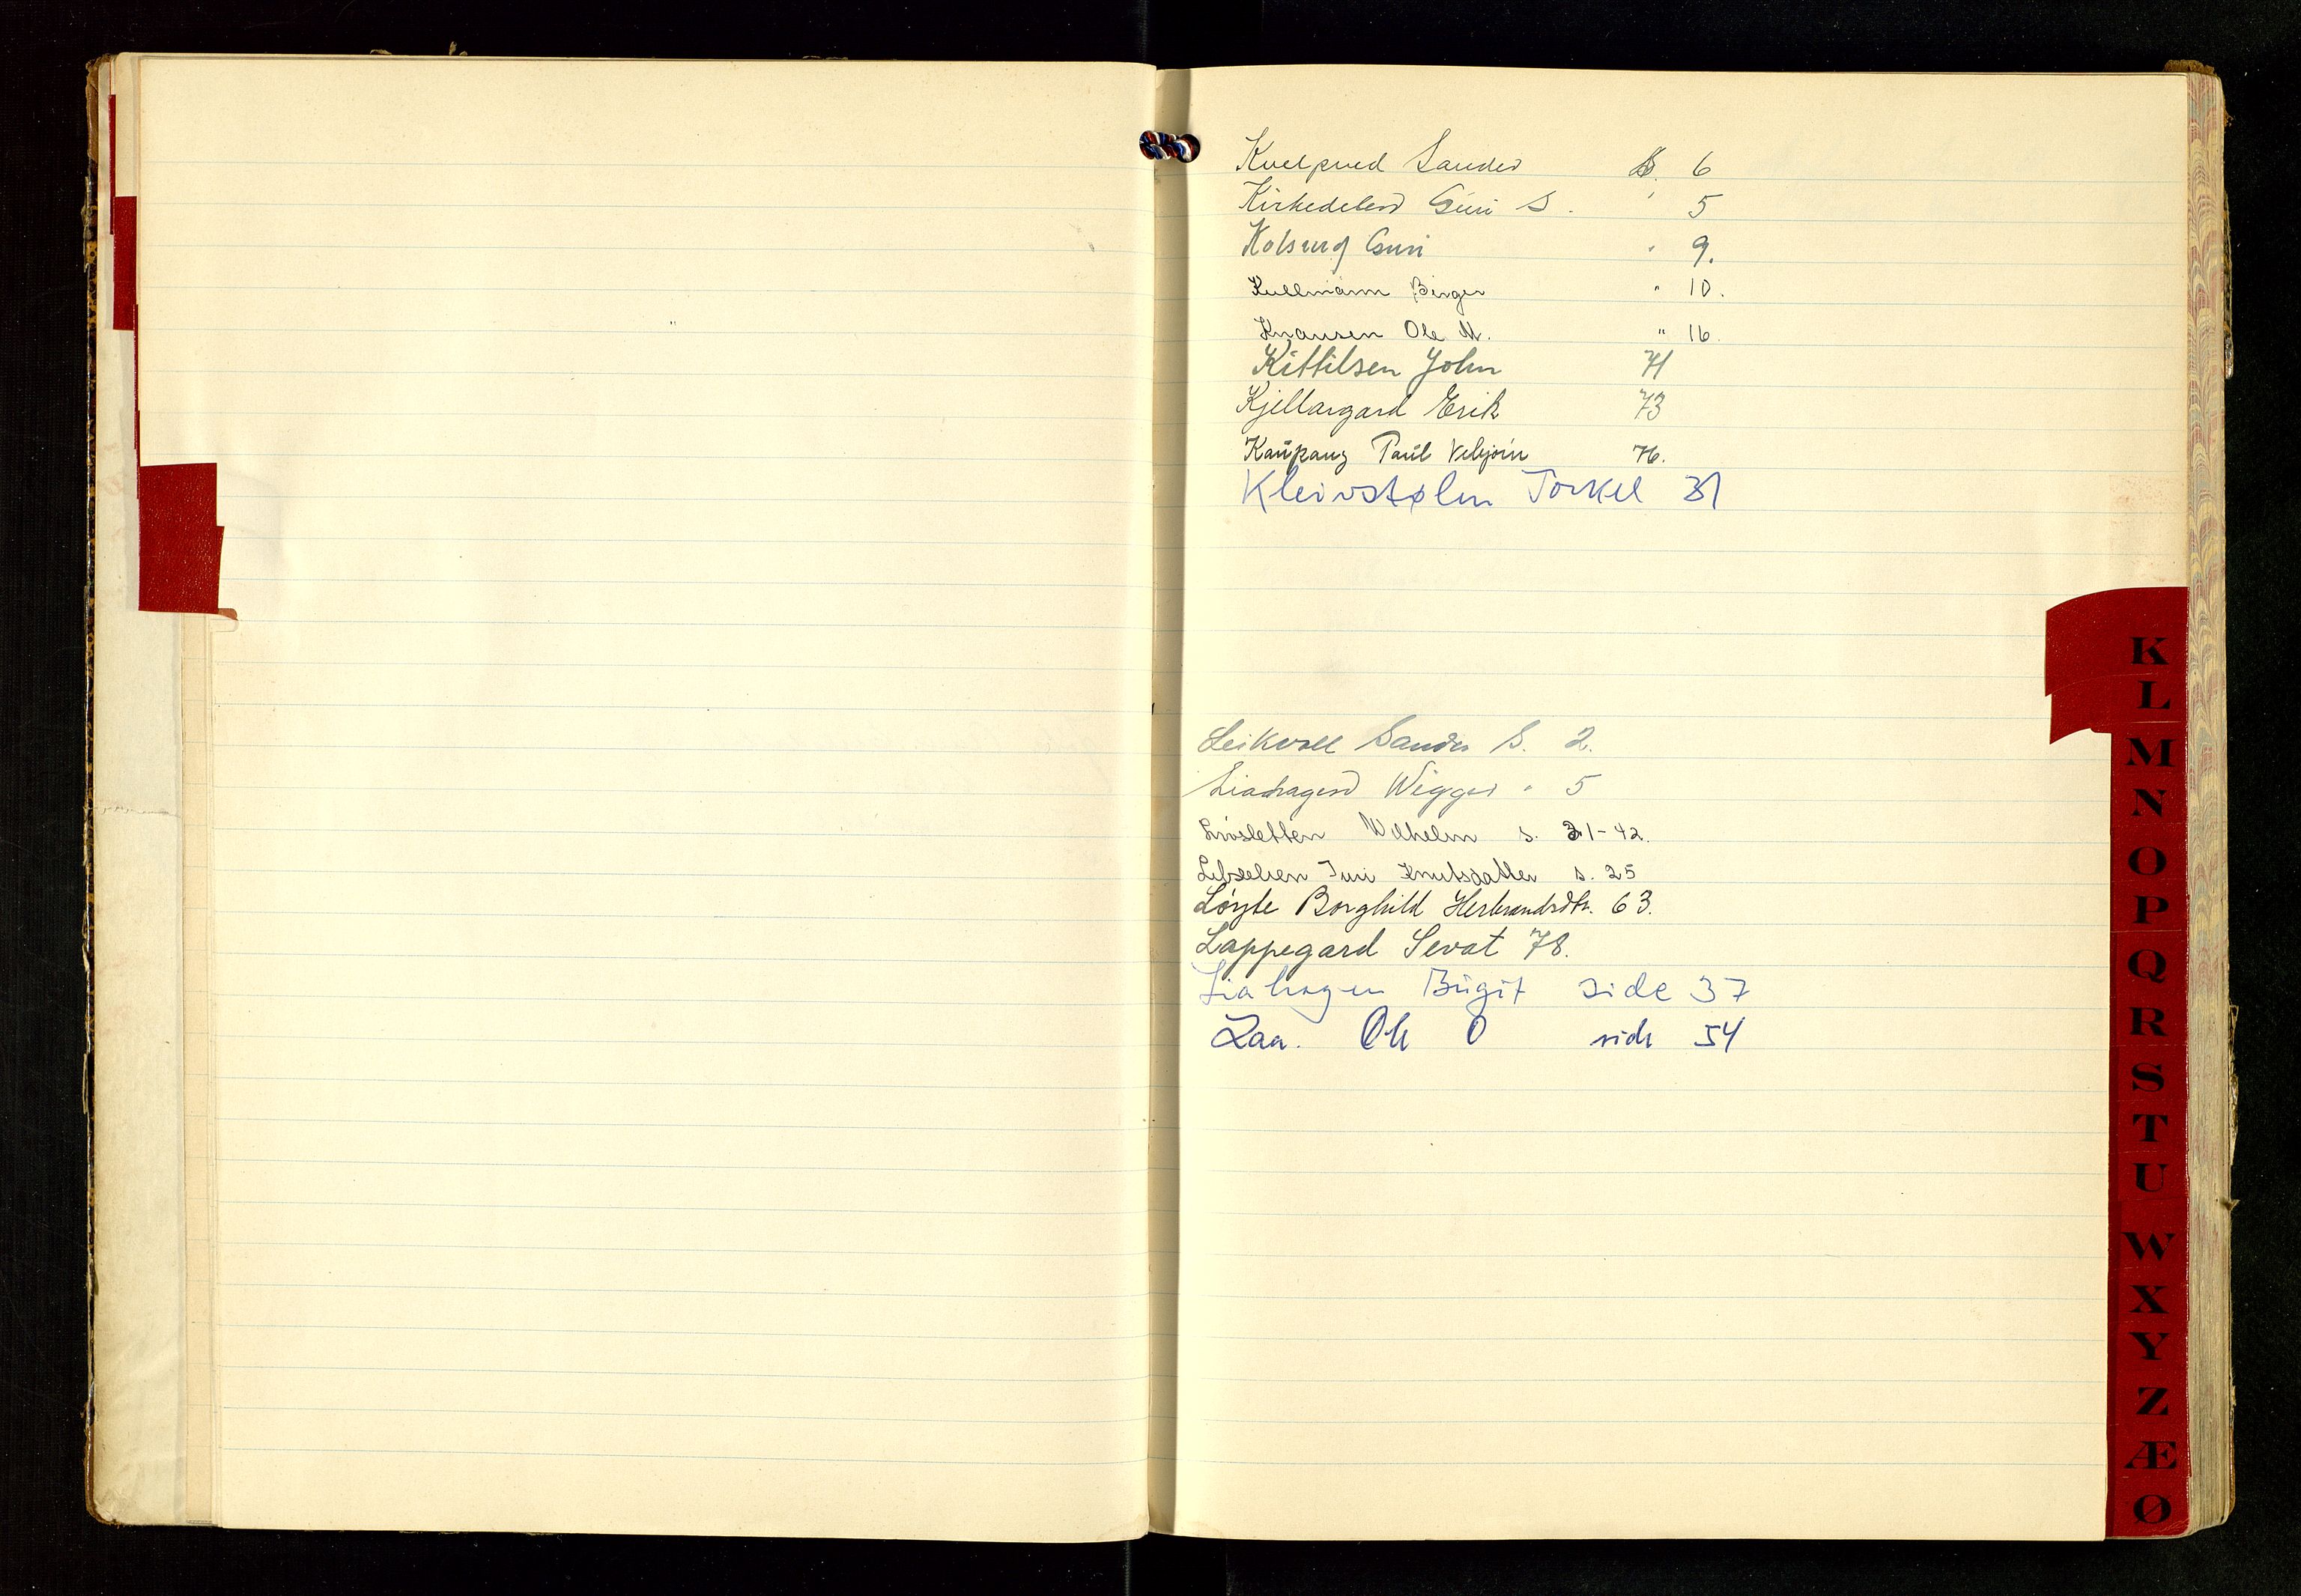 Sander S. 6
Guri S. " 5
Guri " 9.
Kullmann Birger " 10.
Knausen Ole M. " 16.
Kittilsen John 71
Kjellargard Erik 73
Kaupang Paul 76.
Kleivstølen Torkel 31
Leikvoll Sander S. 2.
Liahagen Wigger " 5
Wilhelm s. 21-42.
Juri Knutsdatter s. 25
Løyte Borghild Herbrandsdtr. 63.
Lappegard Sevat 78.
Liahagen Birgit side 37
Laa. Ole O side 54
K
L
M
N
O
P
Q
R
S
T
U
W
X
Y
Z
Æ
Ø